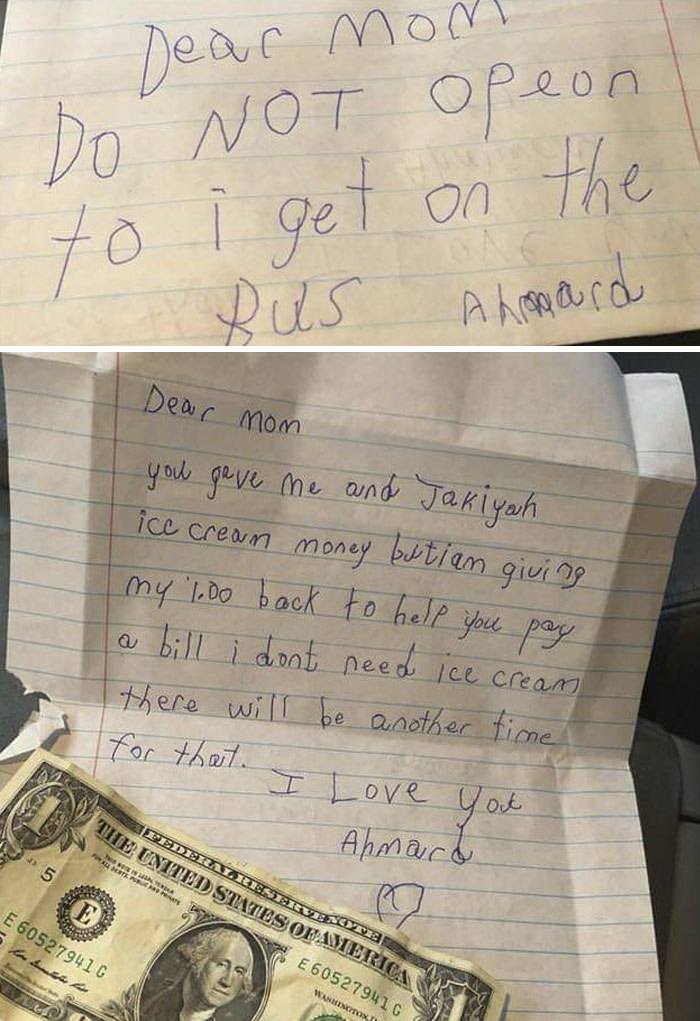 Dear Mom
Do NOT opeon
to i get on the
Bus Ahmard
Dear Mom
you gave me and Jakiyah
ice cream money butiam giving
my 1.00 back to help you pay
a bill i dont need ice cream
there will be another time
for that.
I Love you
Ahmard
FEDERAL RESERVE NOTE
THE UNITED STATES OF AMERICA
THIS NOTE IS LEGAL TENDER
FOR ALL DEBTS, PUBLIC AND PRIVATE
1
5
E
E 60527941 G
E 60527941 G
WASHINGTON, D